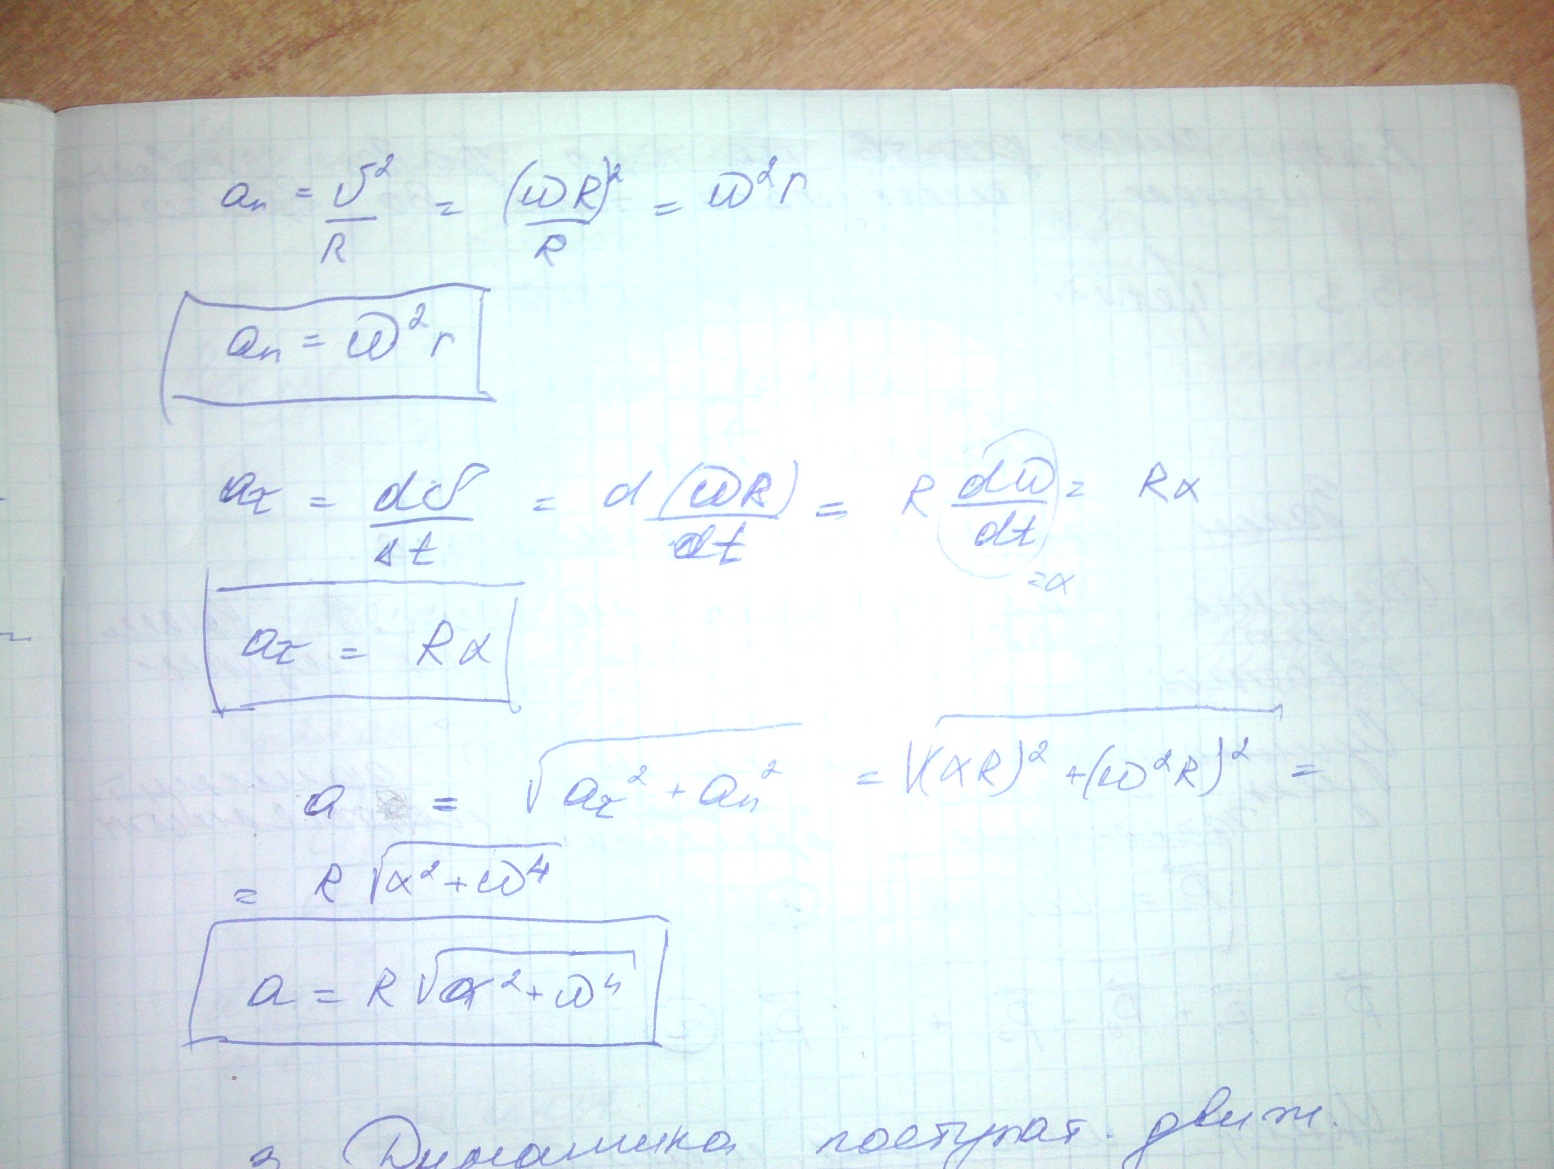 aₙ = υ²/R = (ωR)²/R = ω²r
aₙ = ω²r
a_τ = dυ/dt = d(ωR)/dt = R dω/dt = Rα
=α
a_τ = Rα
a = √(a_τ² + aₙ²) = √((αR)² + (ω²R)²) =
= R√(α² + ω⁴)
a = R√(α² + ω⁴)
3 Динамика поступат. движ.